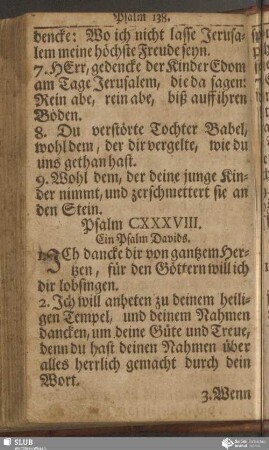 Psalm 138.
dencke: Wo ich nicht lasse Jerusa-
lem meine höchste Freude seyn.
7. HErr, gedencke der Kinder Edom
am Tage Jerusalem, die da sagen:
Rein abe, rein abe, biß auff ihren
Boden.
8. Du verstörte Tochter Babel,
wohl dem, der dir vergelte, wie du
uns gethan hast.
9. Wohl dem, der deine junge Kin-
der nimmt, und zerschmettert sie an
den Stein.
Psalm CXXXVIII.
Ein Psalm Davids.
1. JCh dancke dir von gantzem Her-
tzen, für den Göttern will ich
dir lobsingen.
2. Jch will anbeten zu deinem heili-
gen Tempel, und deinem Nahmen
dancken, um deine Güte und Treue,
denn du hast deinen Nahmen über
alles herrlich gemacht durch dein
Wort.
3. Wenn
SLUB